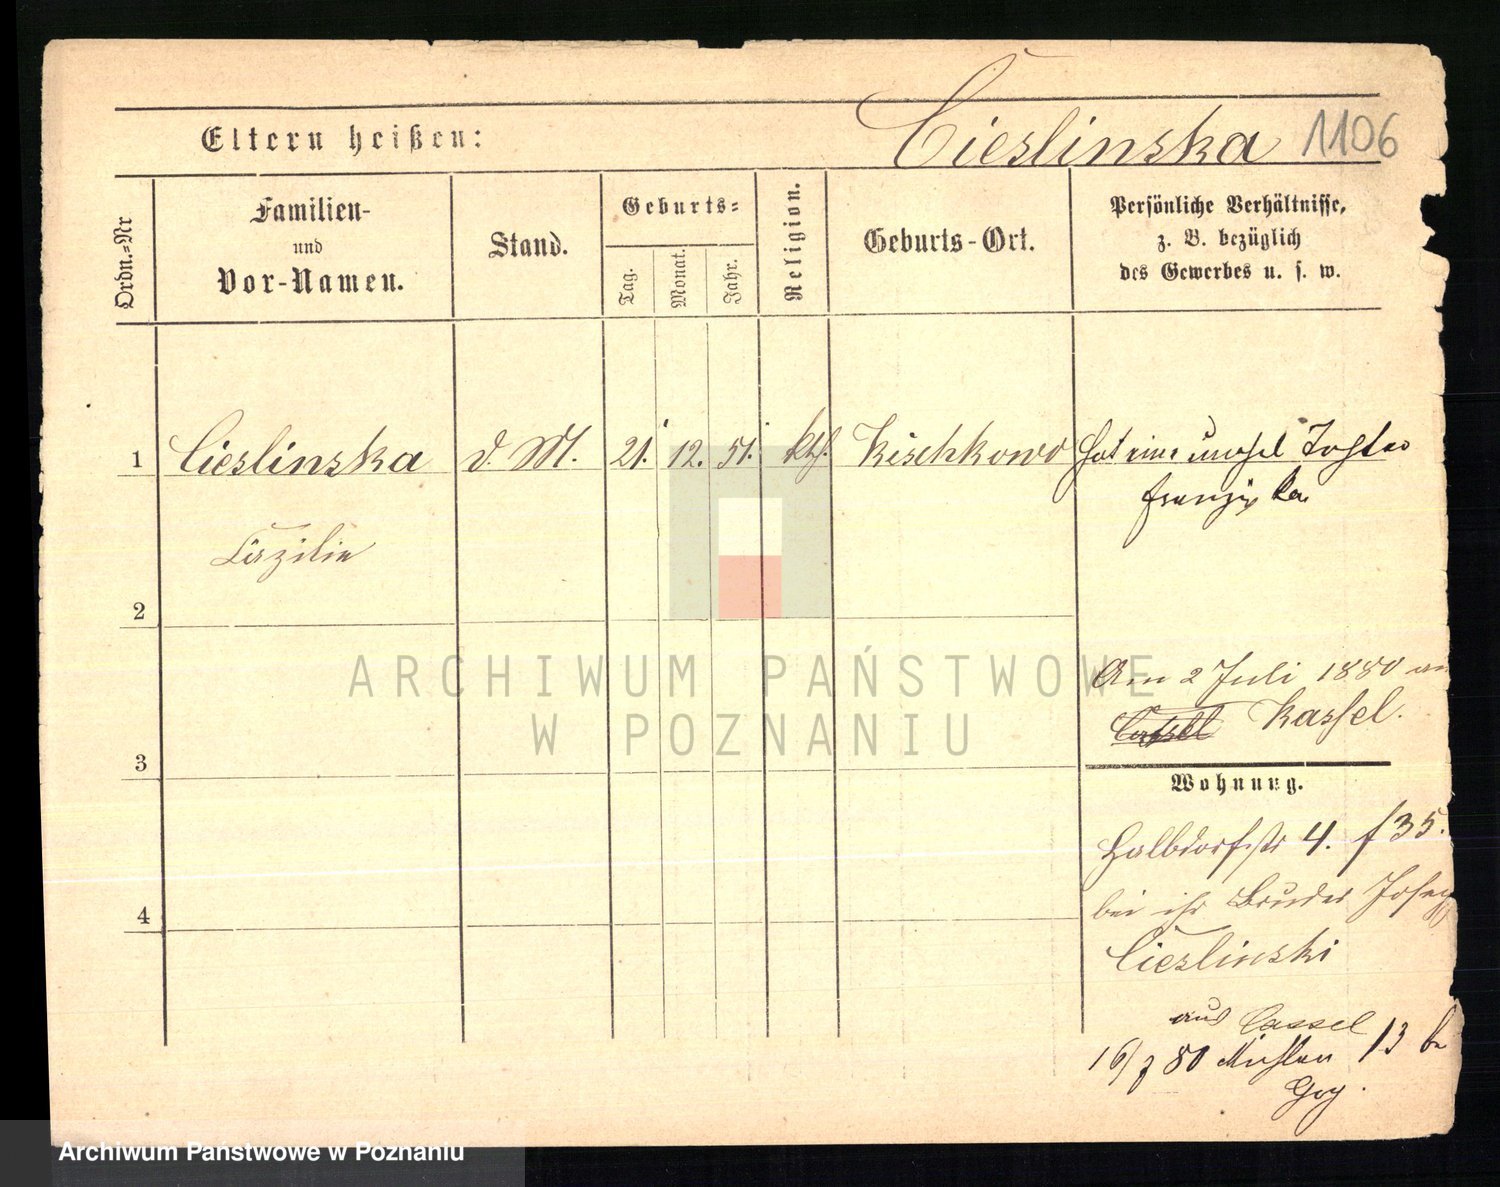 Eltern heißen:
Cieslinska 1106
Ordn.=Nr
Familien-
und
Vor-Namen.
Stand.
Geburts=
Tag.
Monat.
Jahr.
Religion.
Geburts-Ort.
Persönliche Verhältnisse,
z. B. bezüglich
des Gewerbes u. s. w.
1 Cieslinska d. M. 21. 12. 51. kth. Kischkowo Hat eine unehel Tochter
Franziska
Cäzilie
2
Am 2 Juli 1880 an
Cassel Kassel.
3
Wohnung.
Halbdorfstr 4. f 35.
bei ihr Bruder Josep
4
Cieslinski
aus Cassel
16/7 80 Mühlen 13 be
ARCHIWUM PAŃSTWOWE
W POZNANIU
Archiwum Państwowe w Poznaniu